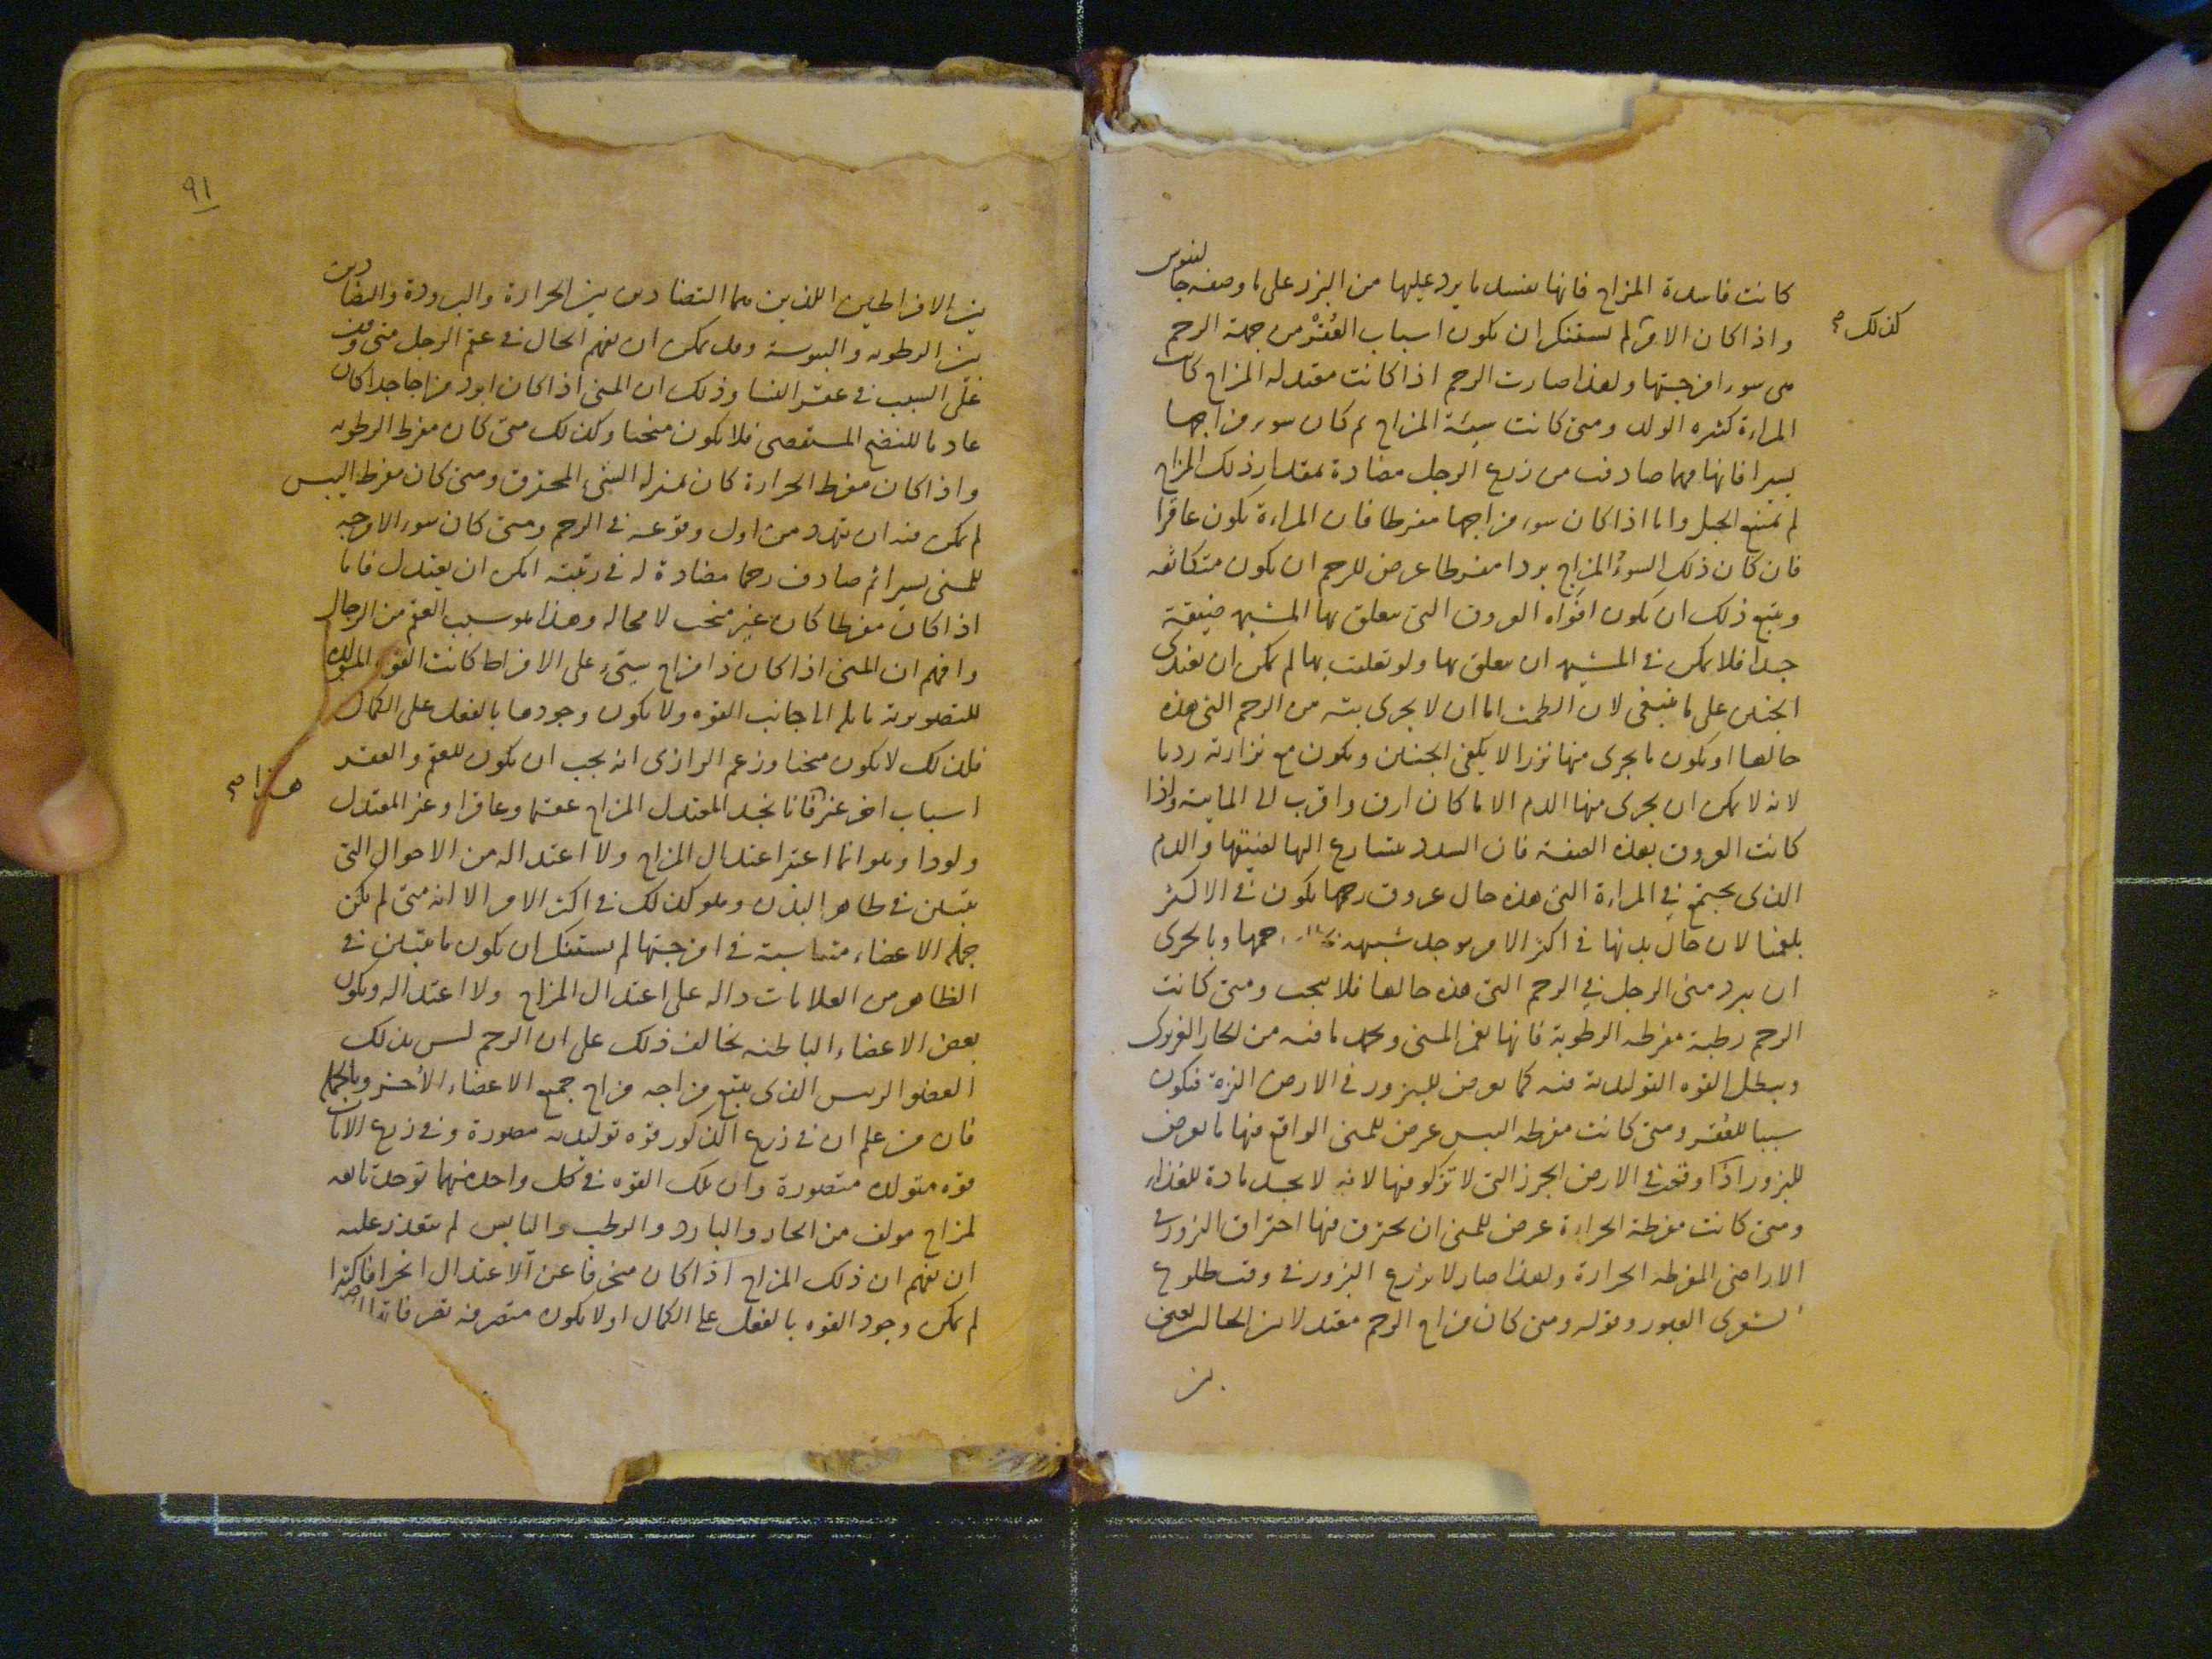 كانت فاسدة المزاج فانها تفسد ما يرد عليها من البزر على ما وصفه جالينوس
واذا كان الامر لم يستنكر ان يكون اسباب العُقْر من جهة الرحم
كذلك صح
هى سوء امزجتها ولهذا صارت الرحم اذا كانت معتدله المزاج كانت
المراءة كثيره الولد ومتى كانت سيئة المزاج ثم كان سوء مزاجها
يسيرا فانها مهما صادفت من زرع الرجل مضادة بمقدار ذلك المزاج
لم يمتنع الحبل واما اذا كان سوء مزاجها مفرطا فان المراءة تكون عاقرا
فان كان ذلك السوء المزاج بردا مفرطا عرض للرحم ان يكون متكاثفه
ويتبع ذلك ان يكون افواه العروق التى تتعلق بها المشيمه ضيقة
جدا فلا يمكن فى المشيمه ان تتعلق بها ولو تعلقت بها لم يمكن ان يغتذى
الجنين على ما ينبغى لان الطمث اما ان لا يجرى بتة من الرحم التى هذه
حالها او يكون ما يجرى منها نزرا لا يكفى الجنين ويكون مع نزارته رديا
لانه لا يمكن ان يجرى منها الدم الا ما كان ارق واقرب الى المايية واذا
كانت العروق بهذه الصفة فان السدد يتسارع اليها لضيقها والدم
الذى يجتمع فى المراءة التى هذه حال عروق رحمها يكون فى الاكثر
بلغميا لان حال بدنها فى اكثر الامر يوجد شبيهه رحمها وبالحرى
ان يبرد منى الرجل فى الرحم التى هذه حالها فلا ينجب ومتى كانت
الرحم رطبة مفرطه الرطوبة فانها تغمر المنى وتخمد ما فيه من الحار الغريزى
ويبطل القوه التوليدية منه كما يعرض للبزور فى الارض النزة فيكون
سببا للعُقر ومتى كانت مفرطه اليبس عرض للمنى الواقع فيها ما يعرض
للبزور اذا وقعت فى الارض الجرز التى لا تزكو فيها لانه لا يجد مادة للغذاء
ومتى كانت مفرطة الحرارة عرض للمنى ان يحترق فيها احتراق البزور فى
الاراضى المفرطه الحرارة ولهذا صار لا يزرع البزور فى وقت طلوع
الشعرى العبور وقوله ومتى كان مزاج الرحم معتدلا بين الحالين يعنى
بين
٩١
بين الافراطين اللذين هما المتضادين بين الحرارة والبرودة والمضادين
بين الرطوبه واليبوسة وقد يمكن ان تفهم الحال فى عقم الرجل متى وقفت
على السبب فى عقر النسا وذلك ان المنى اذا كان ابرد مزاجا جدا كان
عادما للنضج المستقصى فلا يكون منجبا وكذلك متى كان مفرط الرطوبه
واذا كان مفرط الحرارة كان بمنزله الشىء المحترق ومتى كان مفرط اليبس
لم يمكن فيه ان يتمدد من اول وقوعه فى الرحم ومتى كان سوء الامزجه
للمنى يسيرا ثم صادف رحما مضادة له فى رتبته امكن ان يعتدل فاما
اذا كان مفرطا كان غير منجب لا محاله وهذا هو سبب العقم من الرجال
وافهم ان المنى اذا كان ذا مزاج سيّىء على الافراط كانت القوه المولده
المتصورته مايله الى جانب القوه ولا يكون وجودها بالفعل على الكمال
فلذلك لا يكون منجبا وزعم الرازى انه يجب ان يكون للعقم والعقر
اسباب اخر غير فانا نجد المعتدل المزاج عقيما وعاقرا وغير المعتدل
هذا صح
ولودا وهو انما اعتبر اعتدال المزاج ولا اعتداله من الاحوال التى
تتبين فى ظاهر البدن وهو كذلك فى اكثر الامر الا انه متى لم يكن
جملة الاعضاء متناسبة فى امزجتها لم يستنكر ان يكون ما يتبين فى
الظاهر من العلامات داله على اعتدال المزاج ولا اعتداله ويكون
بعض الاعضاء الباطنه يخالف ذلك على ان الرحم ليس بذلك
العضو الرييس الذى يتبع مزاجه مزاج جميع الاعضاء الأخر وبالجملة
فان من علم ان فى زرع الذكور قوه توليديه مصورة وفى زرع الاناث
قوه متولده متصورة وان تلك القوه فى كل واحد منهما توجد تابعه
لمزاج مولف من الحار والبارد والرطب واليابس لم يتعذر عليه
ان يفهم ان ذلك المزاج اذا كان منحرفا عن الاعتدال انحرافا كثيرا
لم يمكن وجود القوه بالفعل على الكمال او لا يكون متصرفه تصرفاتها